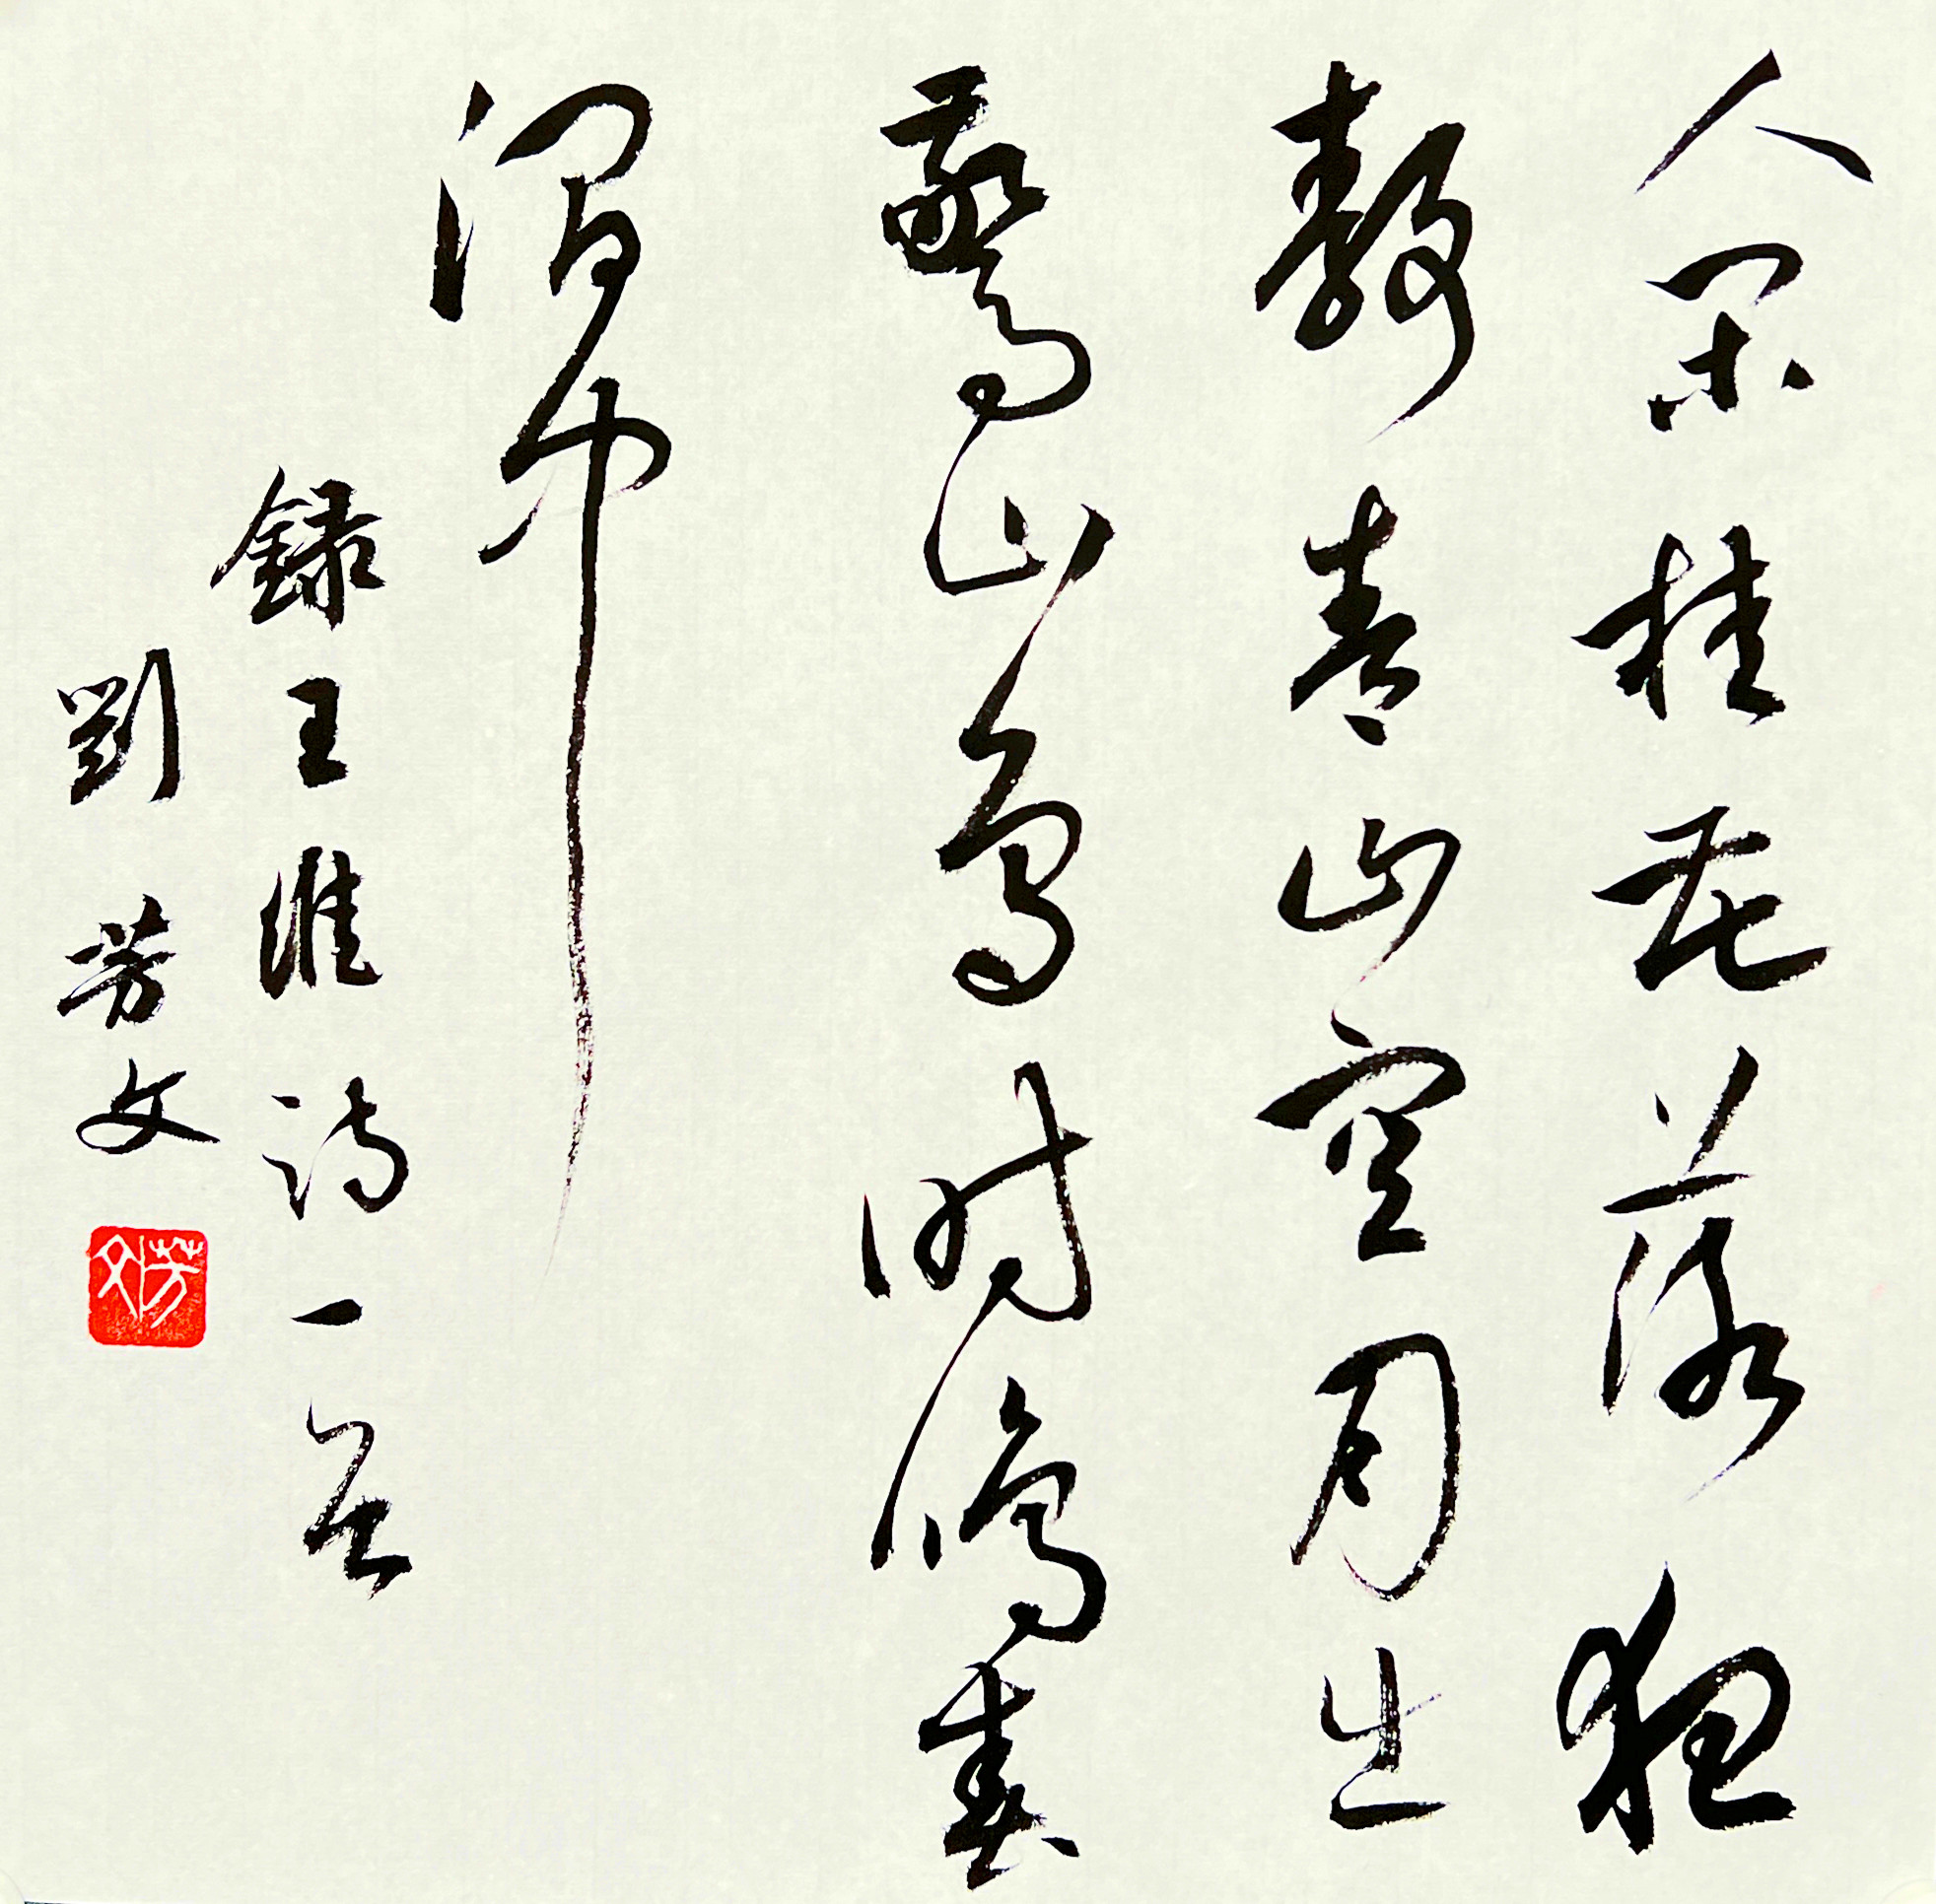 人閑桂花落夜
靜春山空月出
驚山鳥時鳴春
澗中
録王維詩一首
劉芳文
芳文